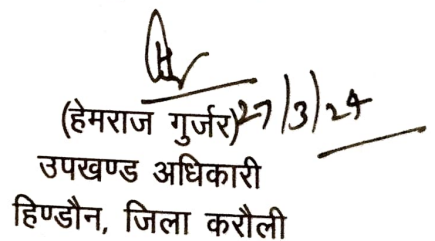 (हेमराज गुर्जर) 27/3/24
उपखण्ड अधिकारी
हिण्डौन, जिला करौली